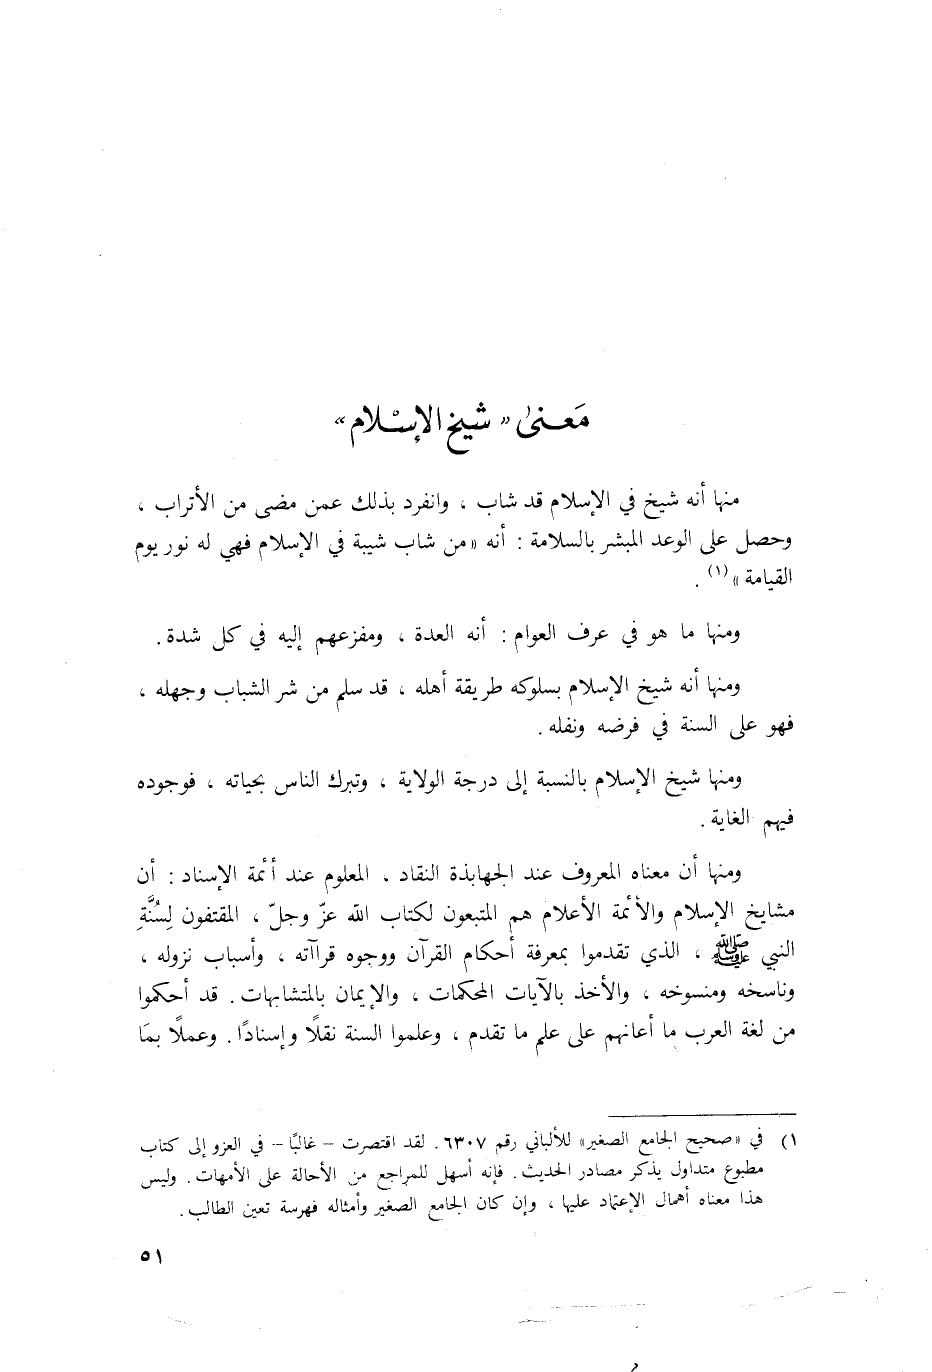 مَعنىٰ « شيخ الإسْلام »
منها أنه شيخ في الإسلام قد شاب ، وانفرد بذلك عمن مضى من الأتراب ،
وحصل على الوعد المبشر بالسلامة : أنه « من شاب شيبة في الإسلام فهي له نور يوم
القيامة »(١) .
ومنها ما هو في عرف العوام : أنه العدة ، ومفزعهم إليه في كل شدة .
ومنها أنه شيخ الإسلام بسلوكه طريقة أهله ، قد سلم من شر الشباب وجهله ،
فهو على السنة في فرضه ونفله .
ومنها شيخ الإسلام بالنسبة إلى درجة الولاية ، وتبرك الناس بحياته ، فوجوده
فيهم الغاية .
ومنها أن معناه المعروف عند الجهابذة النقاد ، المعلوم عند أئمة الإسناد : أن
مشايخ الإسلام والأئمة الأعلام هم المتبعون لكتاب الله عزّ وجلّ ، المقتفون لِسُنَّةِ
النبي ﷺ ، الذي تقدموا بمعرفة أحكام القرآن ووجوه قراآته ، وأسباب نزوله ،
وناسخه ومنسوخه ، والأخذ بالآيات المحكمات ، والإيمان بالمتشابهات . قد أحكموا
من لغة العرب ما أعانهم على علم ما تقدم ، وعلموا السنة نقلًا وإسنادًا . وعملًا بمَا
١) في « صحيح الجامع الصغير » للألباني رقم ٦٣٠٧ . لقد اقتصرت – غالبًا – في العزو إلى كتاب
مطبوع متداول يذكر مصادر الحديث . فإنه أسهل للمراجع من الأحالة على الأمهات . وليس
هذا معناه أهمال الإعتماد عليها ، وإن كان الجامع الصغير وأمثاله فهرسة تعين الطالب .
٥١